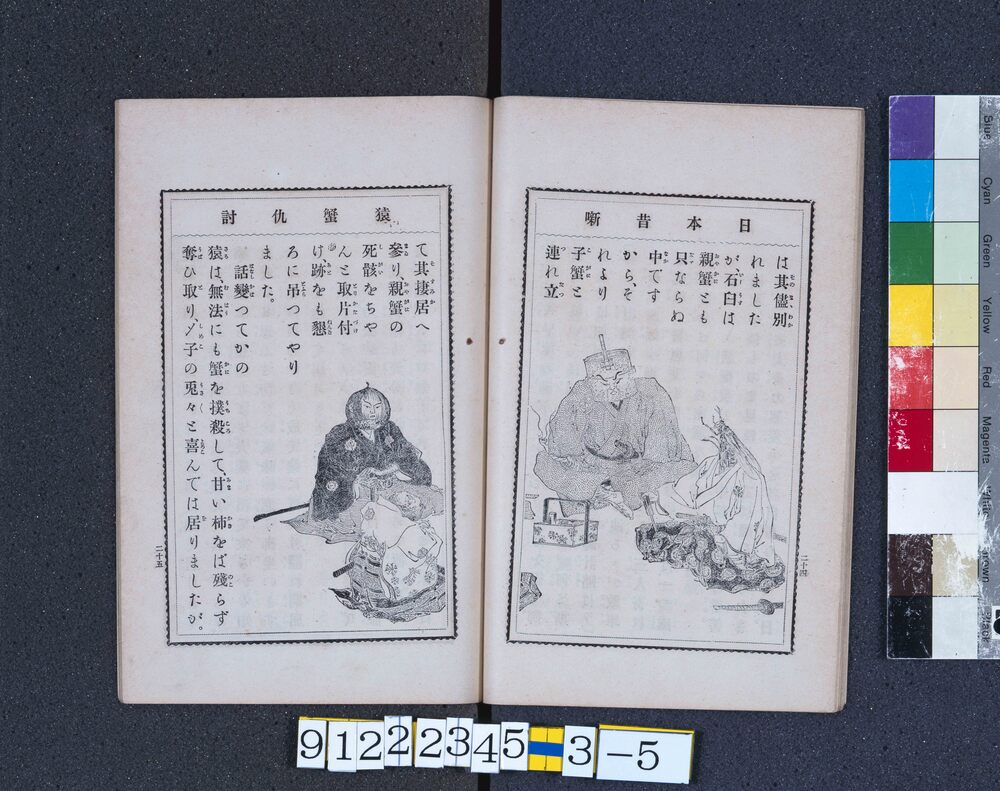 日本昔噺
は其儘別
れました
が、石臼は
親蟹とも
只ならぬ
中です
から、そ
れより
子蟹と
連れ立
二十四
猿蟹仇討
て其棲居へ
參り、親蟹の
死骸をちや
んと取片付
け、跡をも懇
ろに吊つてやり
ました。
話變つてかの
猿は無法にも蟹を撲殺して、甘い柿をば殘らず
奪ひ取り〆子の兎々と喜んでは居りましたが。
二十五
91222345=3-5
Cyan
Green
Yellow
Red
Magenta